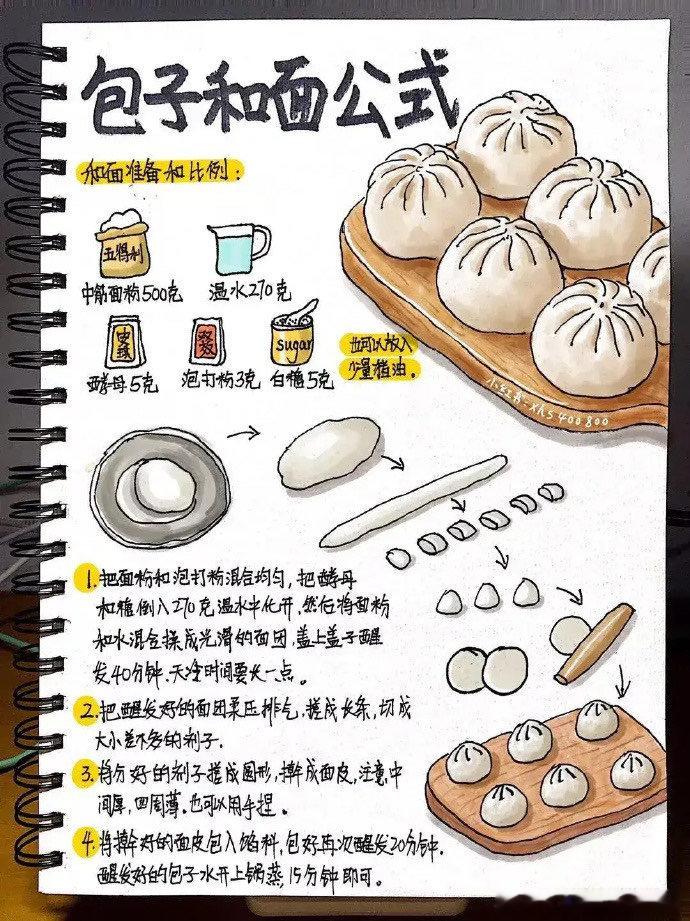 包子和面公式
和面准备和比例：
五得利
中筋面粉500克
温水270克
sugar
酵母5克
泡打粉3克
白糖5克
也可以放入
少量猪油。
小红书:xhs400800
1.把面粉和泡打粉混合均匀，把酵母
和糖倒入270克温水中化开，然后将面粉
和水混合揉成光滑的面团，盖上盖子醒
发40分钟，天冷时间要长一点。
2.把醒发好的面团柔压排气，搓成长条，切成
大小差不多的剂子.
3.将分好的剂子搓成圆形，擀成面皮，注意中
间厚，四周薄。也可以用手捏。
4.将擀好的面皮包入馅料，包好再次醒发20分钟.
醒发好的包子水开上锅蒸，15分钟即可。